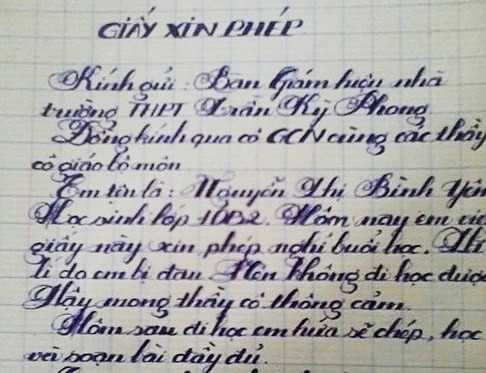 GIẤY XIN PHÉP
Kính gửi : Ban Giám hiệu nhà
trường THPT Trần Kỳ Phong
Đồng kính qua cô GCN cùng các thầy
cô giáo bộ môn
Em tên là : Nguyễn Thị Bình Yên
Học sinh lớp 10B2. Hôm nay em viế
giấy này xin phép nghỉ buổi học.
lí do em bị đau. Nên không đi học đượ
Mây mong thầy cô thông cảm.
Hôm sau đi học em hứa sẽ chép, học
và soạn bài đầy đủ.